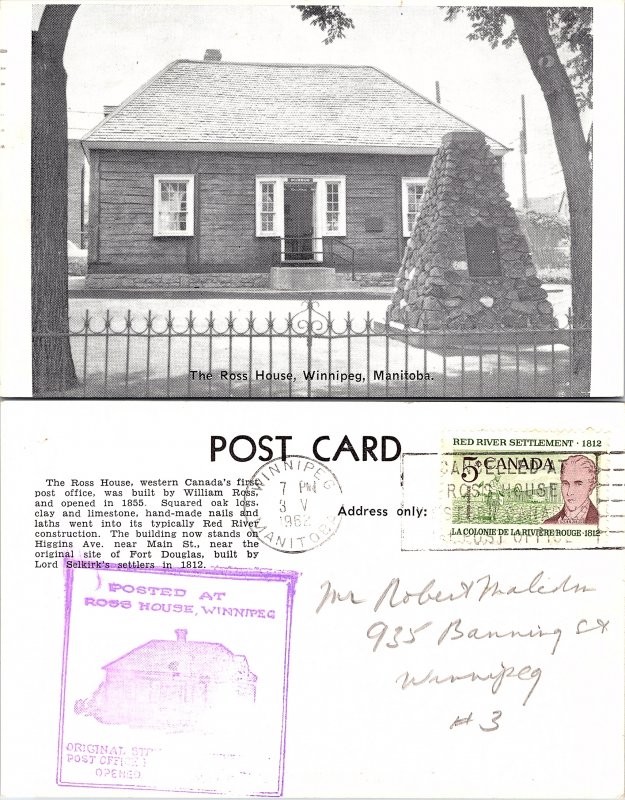 The Ross House, Winnipeg, Manitoba.
POST CARD
The Ross House, western Canada's first
post office, was built by William Ross,
and opened in 1855. Squared oak logs,
clay and limestone, hand-made nails and
laths went into its typically Red River
construction. The building now stands on
Higgins Ave. near Main St., near the
original site of Fort Douglas, built by
Lord Selkirk's settlers in 1812.
WINNIPEG
7 PM
3 V
1962
MANITOBA
Address only:
RED RIVER SETTLEMENT · 1812
5¢ CANADA
LA COLONIE DE LA RIVIÈRE ROUGE · 1812
CANCELLED A
ROSS HOUSE
POST OFFICE
POSTED AT
ROSS HOUSE, WINNIPEG
ORIGINAL
POST OFFICE
OPENED
Mr Robert Malcolm
935 Banning St
Winnipeg
#3